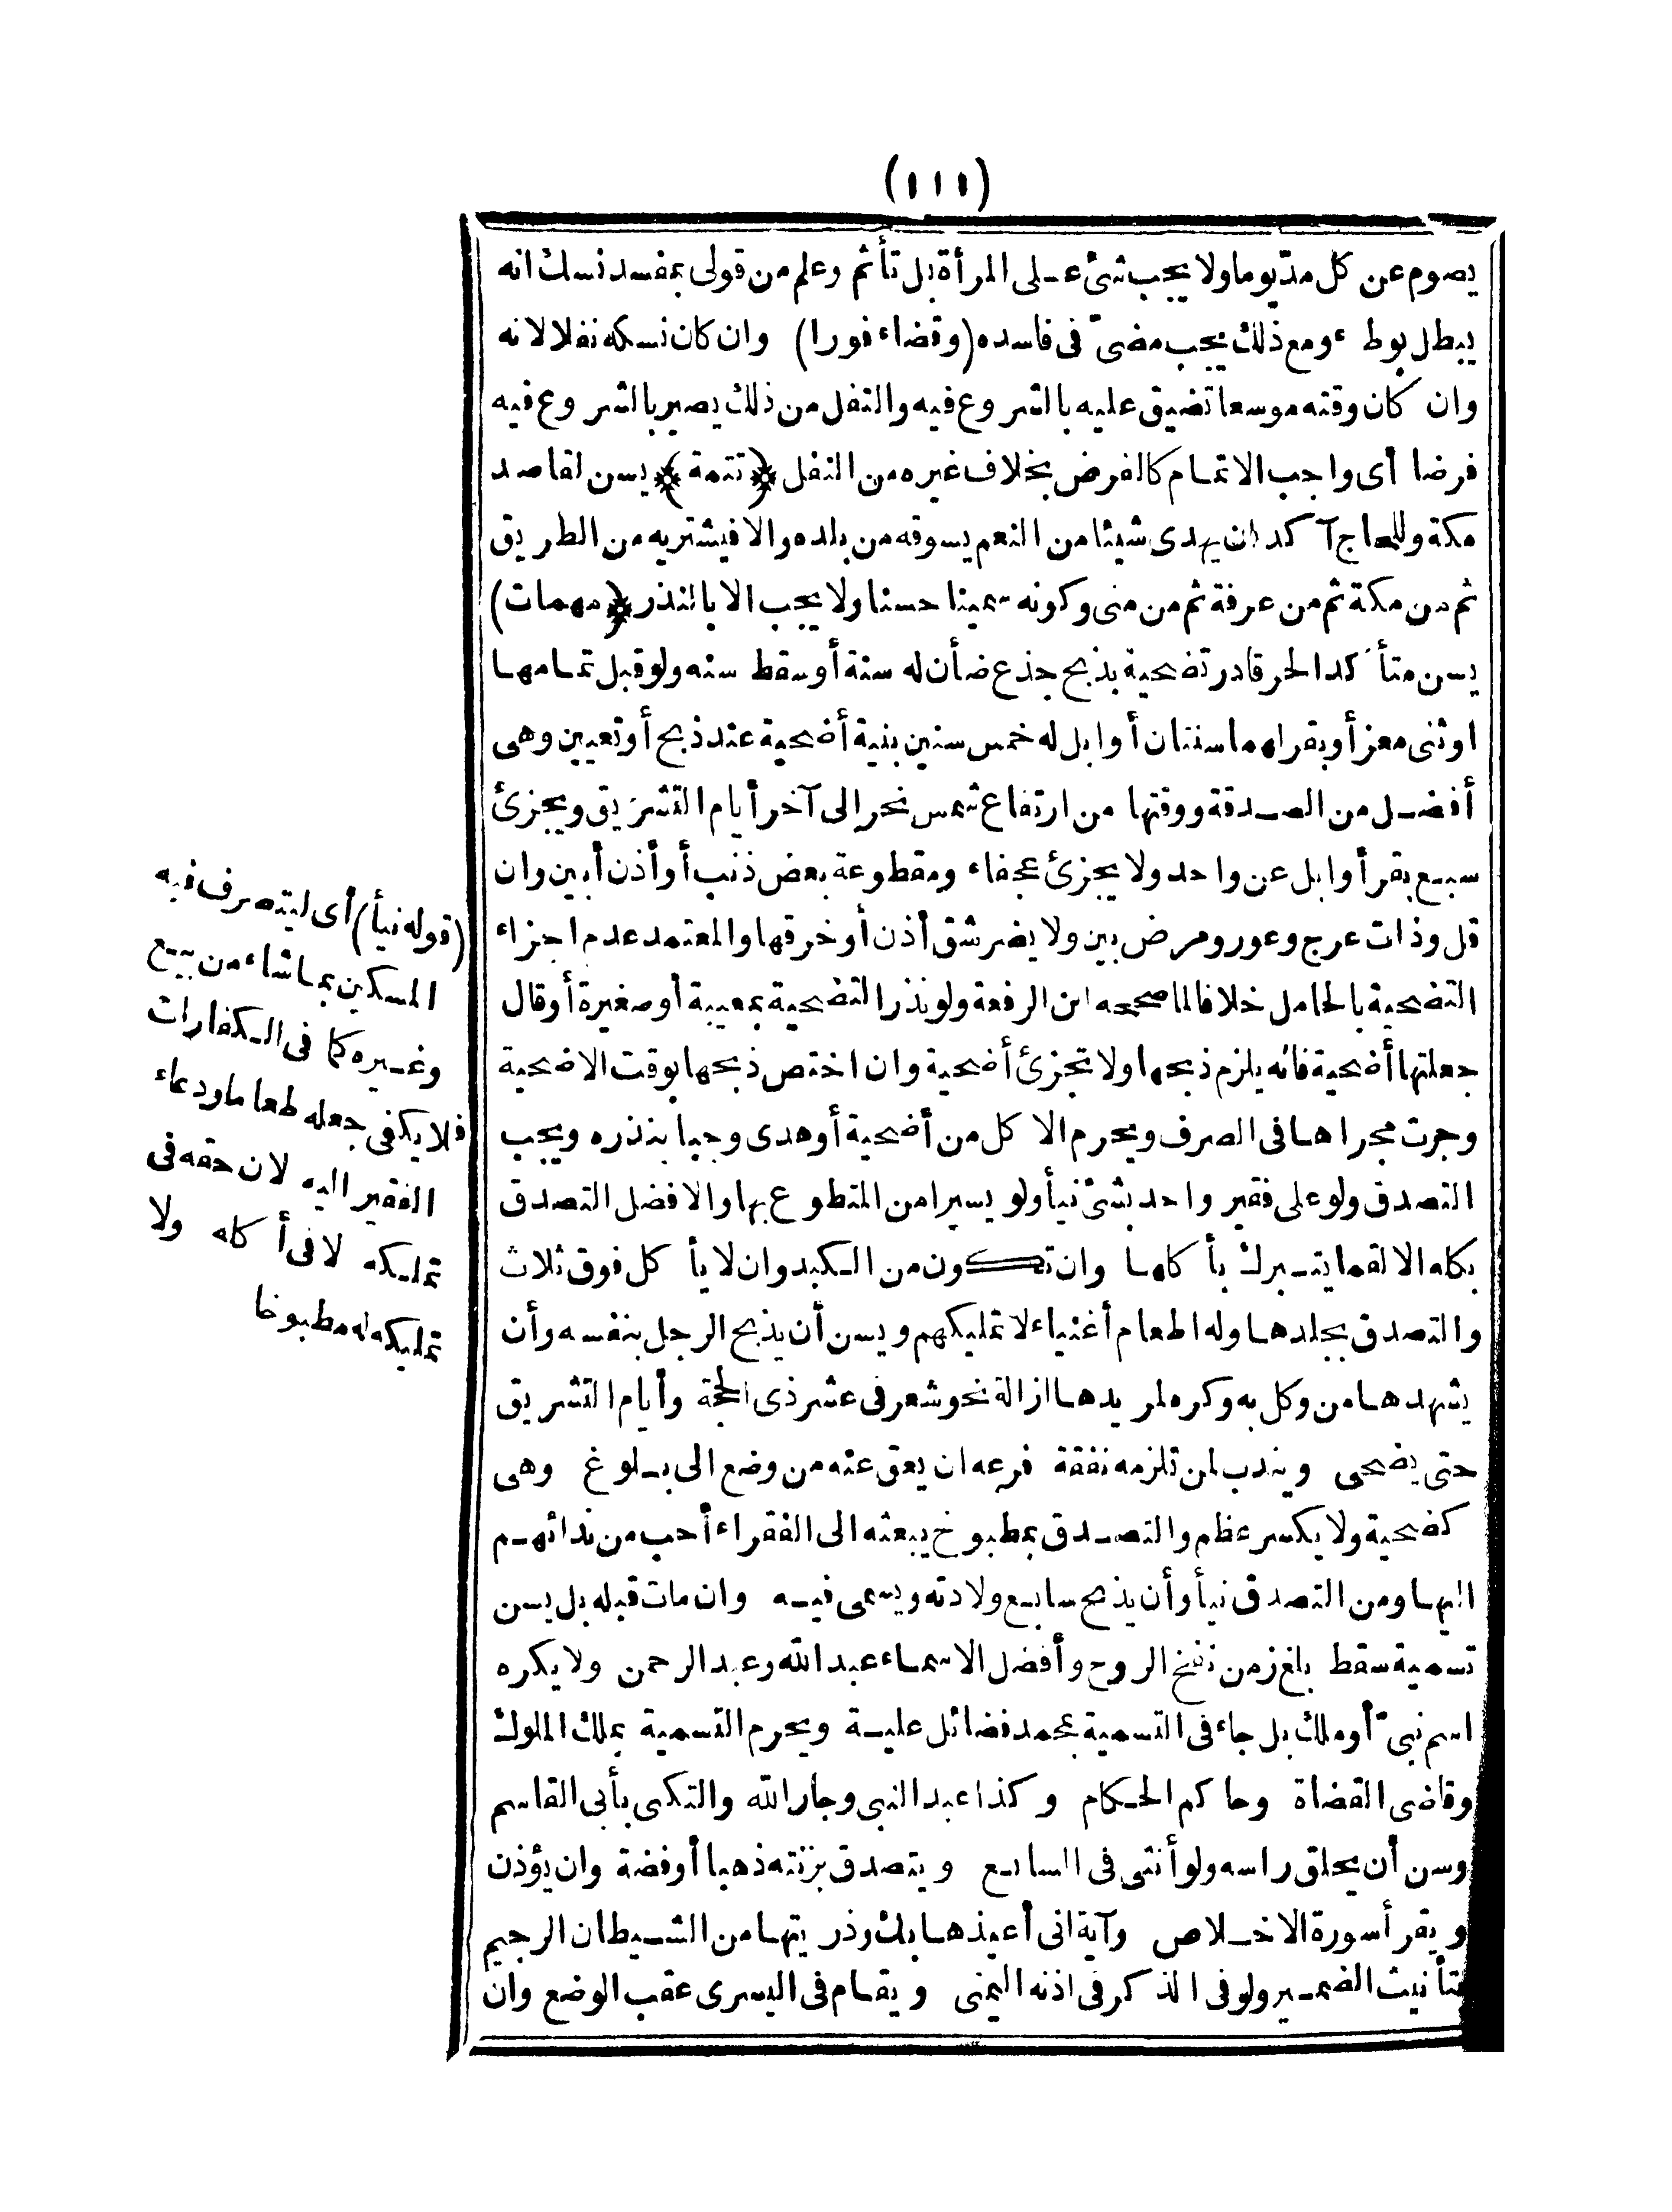 (١١١)
يصوم عن كل مدّ يوما ولا يجب شئ على المرأة بل تأثم وعلم من قولى بمفسد نسك انه
يبطل بوطء ومع ذلك يجب مضىّ فى فاسده (وقضاء فورا) وان كان نسكه نفلا لانه
وان كان وقته موسعا تضيق عليه بالشروع فيه والنفل من ذلك يصير بالشروع فيه
فرضا أى واجب الاتمام كالفرض بخلاف غيره من النفل ﴿تتمة﴾ يسن لقاصد
مكة وللحاج آكد ان يهدى شيئا من النعم يسوقه من بلده والا فيشتريه من الطريق
ثم من مكة ثم من عرفة ثم من منى وكونه سمينا حسنا ولا يجب الا بالنذر ﴿مهمات)
يسن متأكدا لحر قادر تضحية بذبح جذع ضأن له سنة أو سقط سنه ولو قبل تمامها
او ثنى معز أو بقر لهما سنتان أو ابل له خمس سنين بنية أضحية عند ذبح أو تعيين وهى
أفضل من الصدقة ووقتها من ارتفاع شمس نحر الى آخر أيام التشريق ويجزئ
سبع بقر أو ابل عن واحد ولا يجزئ عجفاء ومقطوعة بعض ذنب أو أذن أبين وان
قل وذات عرج وعور ومرض بين ولا يضر شق أذن أو خرقها والمعتمد عدم اجزاء
التضحية بالحامل خلافا لما صححه ابن الرفعة ولو نذر التضحية بمعيبة أو صغيرة أو قال
جعلتها أضحية فانه يلزم ذبحها ولا تجزئ أضحية وان اختص ذبحها بوقت الاضحية
وجرت مجراها فى الصرف ويحرم الاكل من أضحية أو هدى وجبا بنذره ويجب
التصدق ولو على فقير واحد بشئ نيأ ولو يسيرا من المتطوع بها والافضل التصدق
بكله الا لقما يتبرك بأكلها وان تكون من الكبد وان لا يأكل فوق ثلاث
والتصدق بجلدها وله اطعام أغنياء لا تمليكهم ويسن أن يذبح الرجل بنفسه وأن
يشهدها من وكل به وكره لمريدها ازالة نحو شعر فى عشر ذى الحجة وأيام التشريق
حتى يضحى ويندب لمن تلزمه نفقة فرعه ان يعق عنه من وضع الى بلوغ وهى
كضحية ولا يكسر عظم والتصدق بمطبوخ يبعثه الى الفقراء أحب من ندائهم
اليها ومن التصدق نيأ وأن يذبح سابع ولادته ويسمى فيه وان مات قبله بل يسن
تسمية سقط بلغ زمن نفخ الروح وأفضل الاسماء عبد الله وعبد الرحمن ولا يكره
اسم نبىّ أو ملك بل جاء فى التسمية بمحمد فضائل علية ويحرم التسمية بملك الملوك
وقاضى القضاة وحاكم الحكام وكذا عبد النبى وجار الله والتكنى بأبى القاسم
وسن أن يحلق راسه ولو أنثى فى السابع ويتصدق بزنته ذهبا أو فضة وان يؤذن
ويقرأ سورة الاخلاص وآية انى أعيذها بك وذريتها من الشيطان الرجيم
بتأنيث الضمير ولو فى الذكر فى اذنه اليمنى ويقام فى اليسرى عقب الوضع وان
(قوله نيأ) أى ليتصرف فيه
المسكين بما شاء من بيع
وغيره كما فى الكفارات
فلا يكفى جعله طعاما ودعاء
الفقير اليه لان حقه فى
تملكه لا فى أكله ولا
تمليكه له مطبوخا